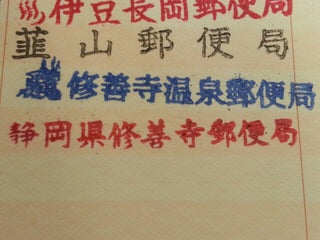 伊豆長岡郵便局
韮山郵便局
修善寺温泉郵便局
静岡県修善寺郵便局